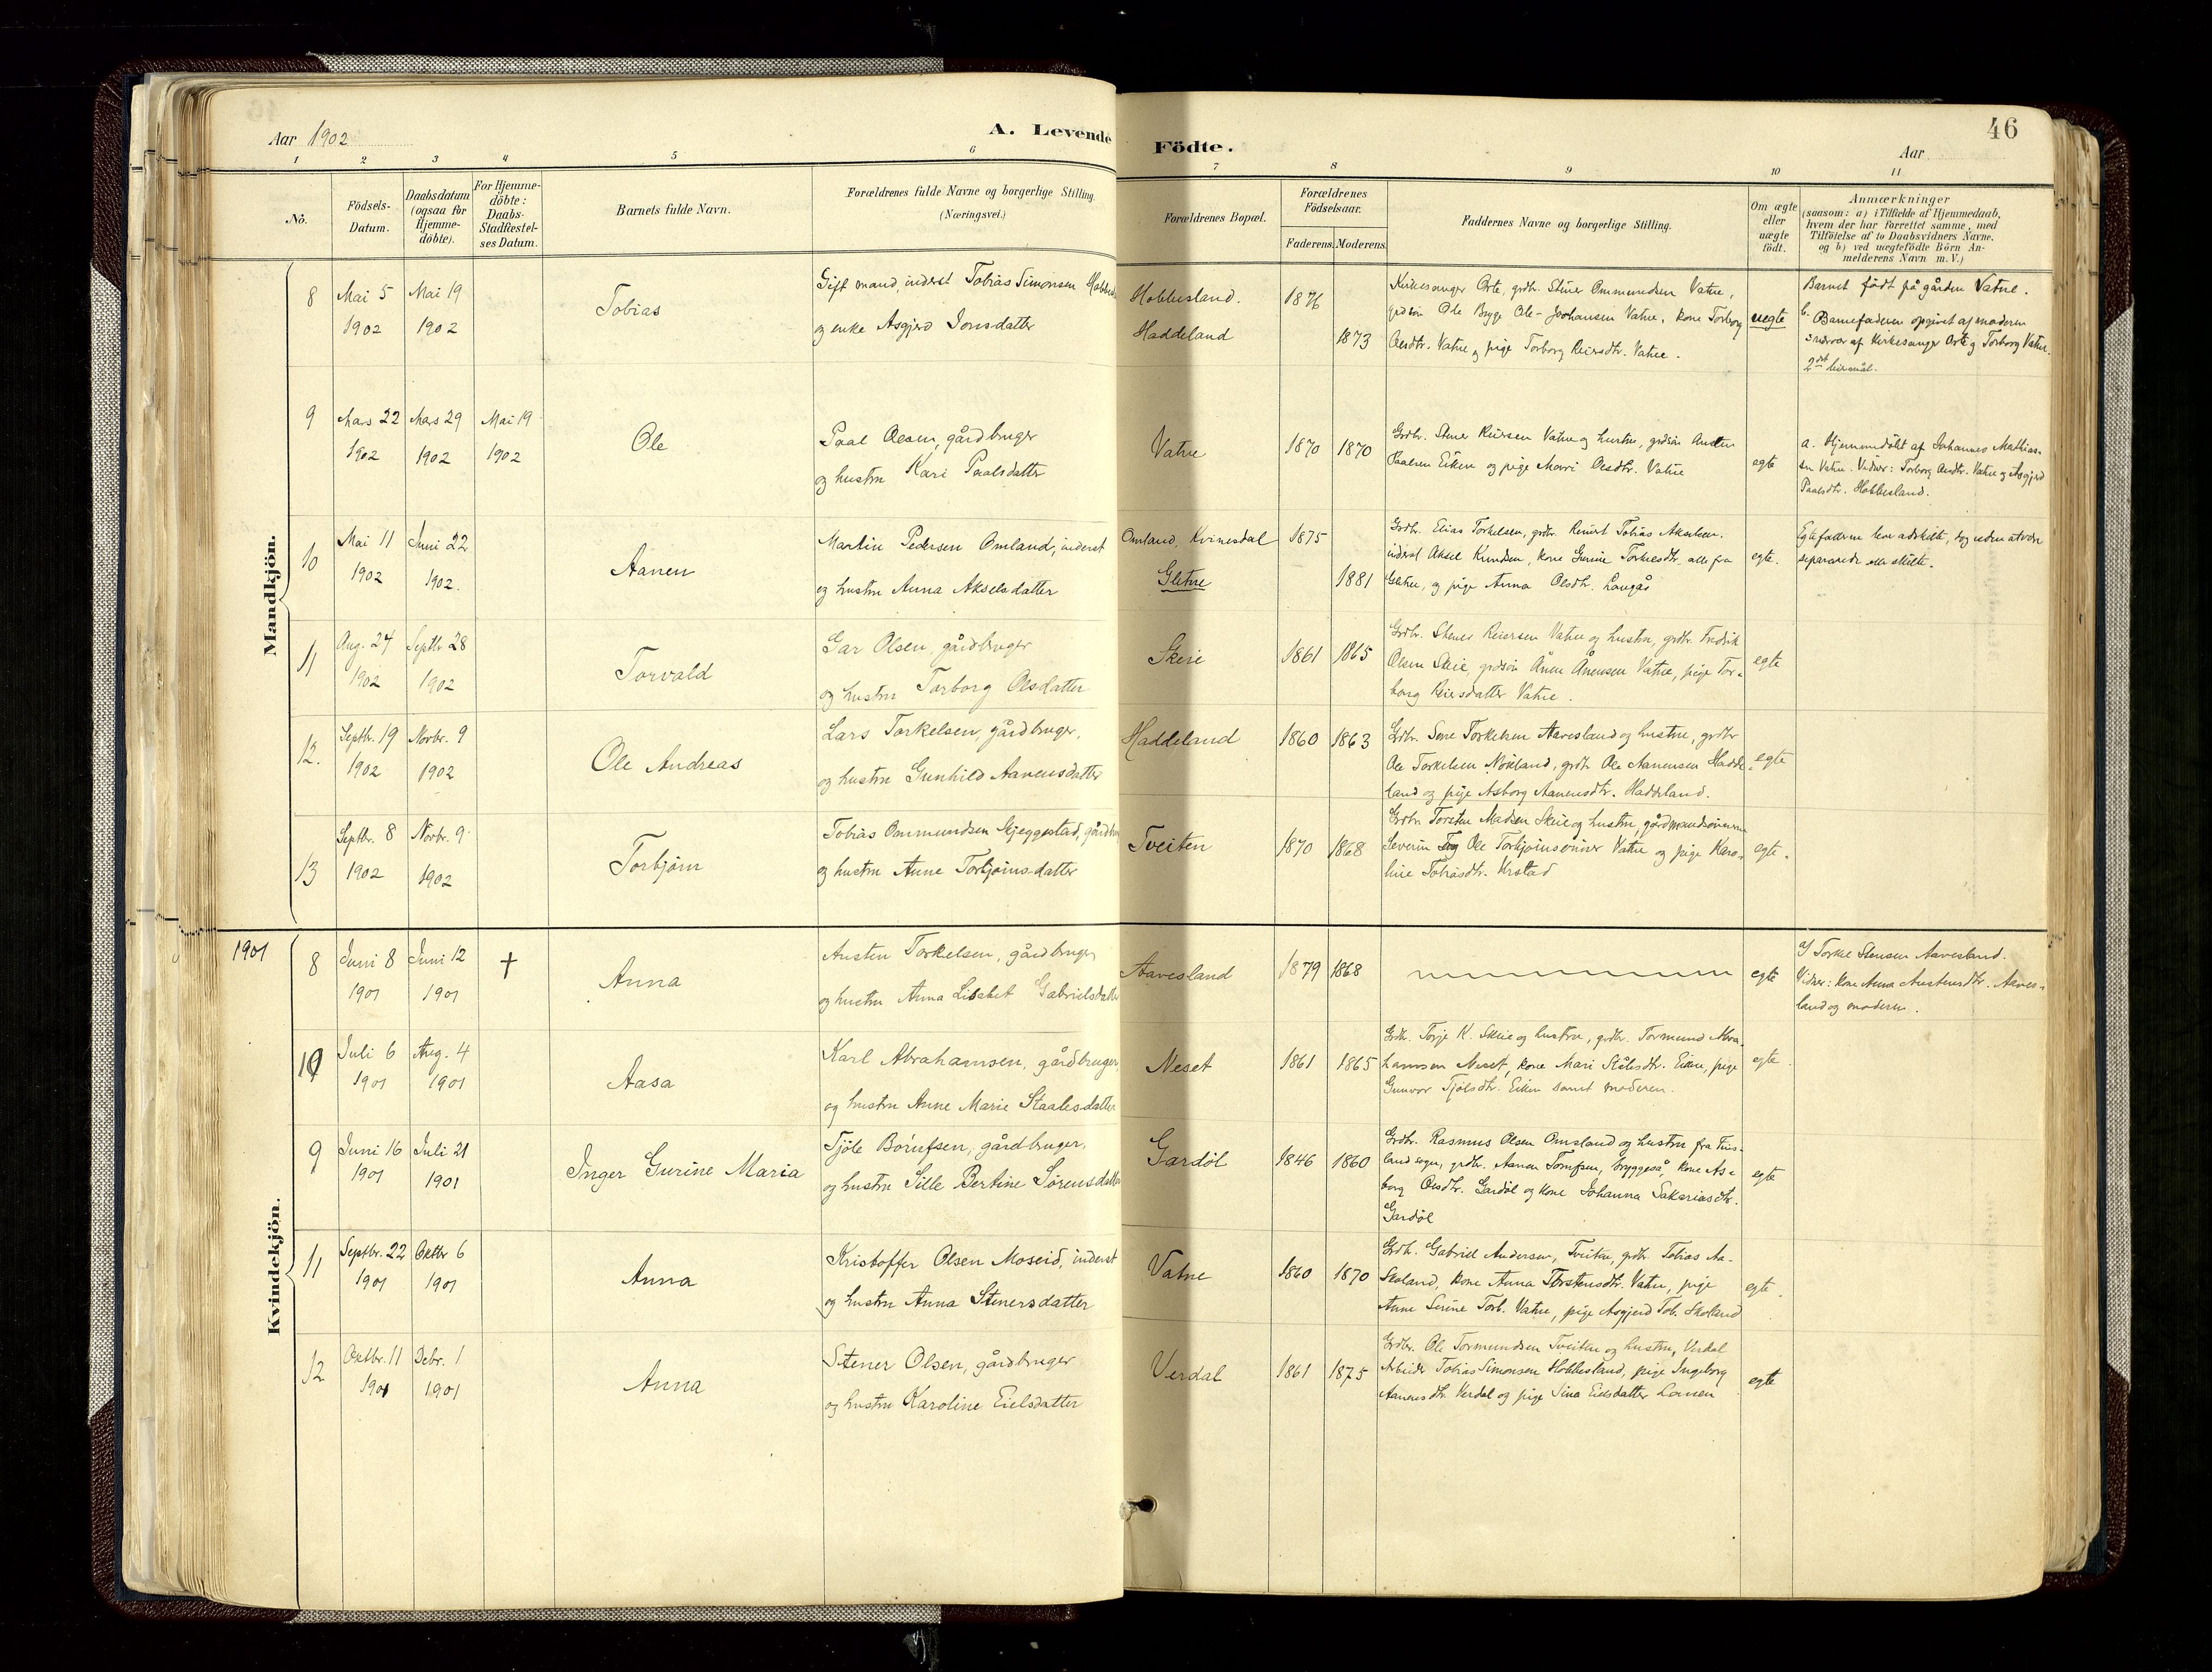 46
Aar 1902
A. Levende Födte.
Aar
1 2 3 4 5 6 7 8 9 10 11
No.
Födsels-Datum.
Daabsdatum (ogsaa for Hjemme-döbte).
For Hjemme-döbte: Daabs-Stadfæstel-ses Datum.
Barnets fulde Navn.
Forældrenes fulde Navne og borgerlige Stilling. (Næringsvei.)
Forældrenes Bopæl.
Forældrenes Födselsaar.
Faderens. Moderens.
Faddernes Navne og borgerlige Stilling.
Om ægte eller uægte födt.
Anmærkninger
(saasom: a) i Tilfælde af Hjemmedaab, hvem der har forrettet samme, med Tilföielse af to Daabsvidners Navne, og b) ved uægtefödte Börn An-melderens Navn m. V.)
Mandkjön.
8 Mai 5 1902 Mai 19 1902
Tobias
Gift mand, inderst Tobias Simonsen
og enke Asgjerd Jonsdatter
Hobbesland. 1876
Haddeland 1873
Kirkesanger Orte, grdbr. Stener Ommundsen Vatne,
Ole Brygge Ole Johansen Vatne, kone Torborg
Olesdtr. Vatne og pige Torborg Reiersdtr. Vatne.
uegte
Barnet födt på gården Vatne.
b. Barnefaderen opgivet af moderen
i nærvær af Kirkesanger Orte og Torborg Vatne.
2det leiermål.
9 Mars 22 1902 Mars 29 1902 Mai 19 1902
Ole
Paal Olesen, gårdbruger
og hustru Kari Paalsdatter
Vatne 1870 1870
Grdbr. Stener Reiersen Vatne og hustru, grdsön Austen
Paalsen Eiken og pige Marri Olesdtr. Vatne
egte
a. Hjemmedöbt af Johannes Mathias-
sen Vatne. Vidner: Torborg Aasdtr. Vatne og Asgjerd
Paalsdtr. Hobbesland.
10 Mai 11 1902 Juni 22 1902.
Aanen
Martin Pedersen Omland, inderst
og hustru Anna Akselsdatter
Omland, Kvinesdal 1875
Gletne 1881
Grdbr. Elias Torkelsen, grdbr. Reinert Tobias Akselsen.
inderst Aksel Knudsen, kone Gurine Torkelsdtr. alle fra
Gletne, og pige Anna Olesdtr. Langås
egte.
Egtefædrene leve adskilte, dog uden at være
separerede eller skilte.
11 Aug. 24 1902 Septbr 28 1902
Torvald
Gar Olsen, gårdbruger
og hustru Torborg Olsdatter
Skeie 1861 1865
Grdbr. Stener Reiersen Vatne og hustru, grdbr. Fredrik
Olsen Skeie, grdsön Ånen Ånensen Vatne, pige Tor-
borg Reiersdatter Vatne.
egte
12. Septbr. 19 1902 Novbr. 9 1902
Ole Andreas
Lars Torkelsen, gårdbruger,
og hustru Gunhild Aanensdatter
Haddeland 1860 1863
Grdbr. Torkelsen Aavesland og hustru, grdbr
Ole Torkelsen, grdbr. Ole Aanensen Hadde-
land og pige Asborg Aanensdtr. Haddeland.
egte
13 Septbr. 8 1902 Novbr. 9 1902
Torbjørn
Tobias Ommundsen Skjeggestad,
og hustru Anne Torbjørnsdatter
Tveiten 1870 1868
Grdbr. Torsten Madsen Skeie og hustru, gårdmandssönnerne
Severin og Ole Torbjørnsönner Vatne og pige Karo-
line Tobiasdtr. Urstad
egte.
Kvindekjön.
1901
8 Juni 8 1901 Juni 12 1901 †
Anna
Austen Torkelsen, gårdbruger
og hustru Anna Lisabet Gabrielsdatter
Aavesland 1879 1868
egte
Torkel Stensen Aavesland.
Vidner: kone Anna Austensdtr. Aaves-
land og moderen.
10 Juli 6 1901 Aug. 4 1901
Aasa
Karl Abrahamsen, gårdbruger
og hustru Anne Marie Staalesdatter
Neset 1861 1865
Grdbr. Torje K. Skeie og hustru, grdbr. Tormund Abra-
hamsen Neset, kone Mari Stålesdtr. Eiken, pige
Gunvor Tjölsdtr. Eiken samt moderen.
egte
9 Juni 16 1901 Juli 21 1901
Inger Gurine Maria
Tjöle Borufsen, gårdbruger,
og hustru Sille Bertine Sørensdatter
Gardöl 1846 1860
Grdbr. Rasmus Olsen Omsland og hustru fra Fins-
land sogn, grdbr. Aanen Tomfsen, Bryggeså, kone As-
borg Olesdtr. Gardöl og kone Johanna Sakariasdtr.
Gardöl
egte
11 Septbr. 22 1901 Oktbr 6 1901
Anna
Kristoffer Olsen Moseid, inderst
og hustru Anna Stenersdatter
Vatne 1860 1870
Grdbr. Gabriel Andersen, Tveiten, grdbr. Tobias Aa.
Skoland, kone Anna Torstensdtr. Vatne, pige
Anne Serine Torb. Vatne, pige Asgjerd Tob. Skoland
egte.
12 Oktbr. 11 1901 Debr. 1 1901
Anna
Stener Olsen, gårdbruger
og hustru Karoline Eielsdatter
Verdal 1861 1875
Grdbr. Ole Tormundsen Tveiten og hustru, Verdal
Arbeider Tobias Simonsen Hobbesland, pige Ingeborg
Aanensdtr. Verdal og pige Sina Eielsdatter Lonen
egte